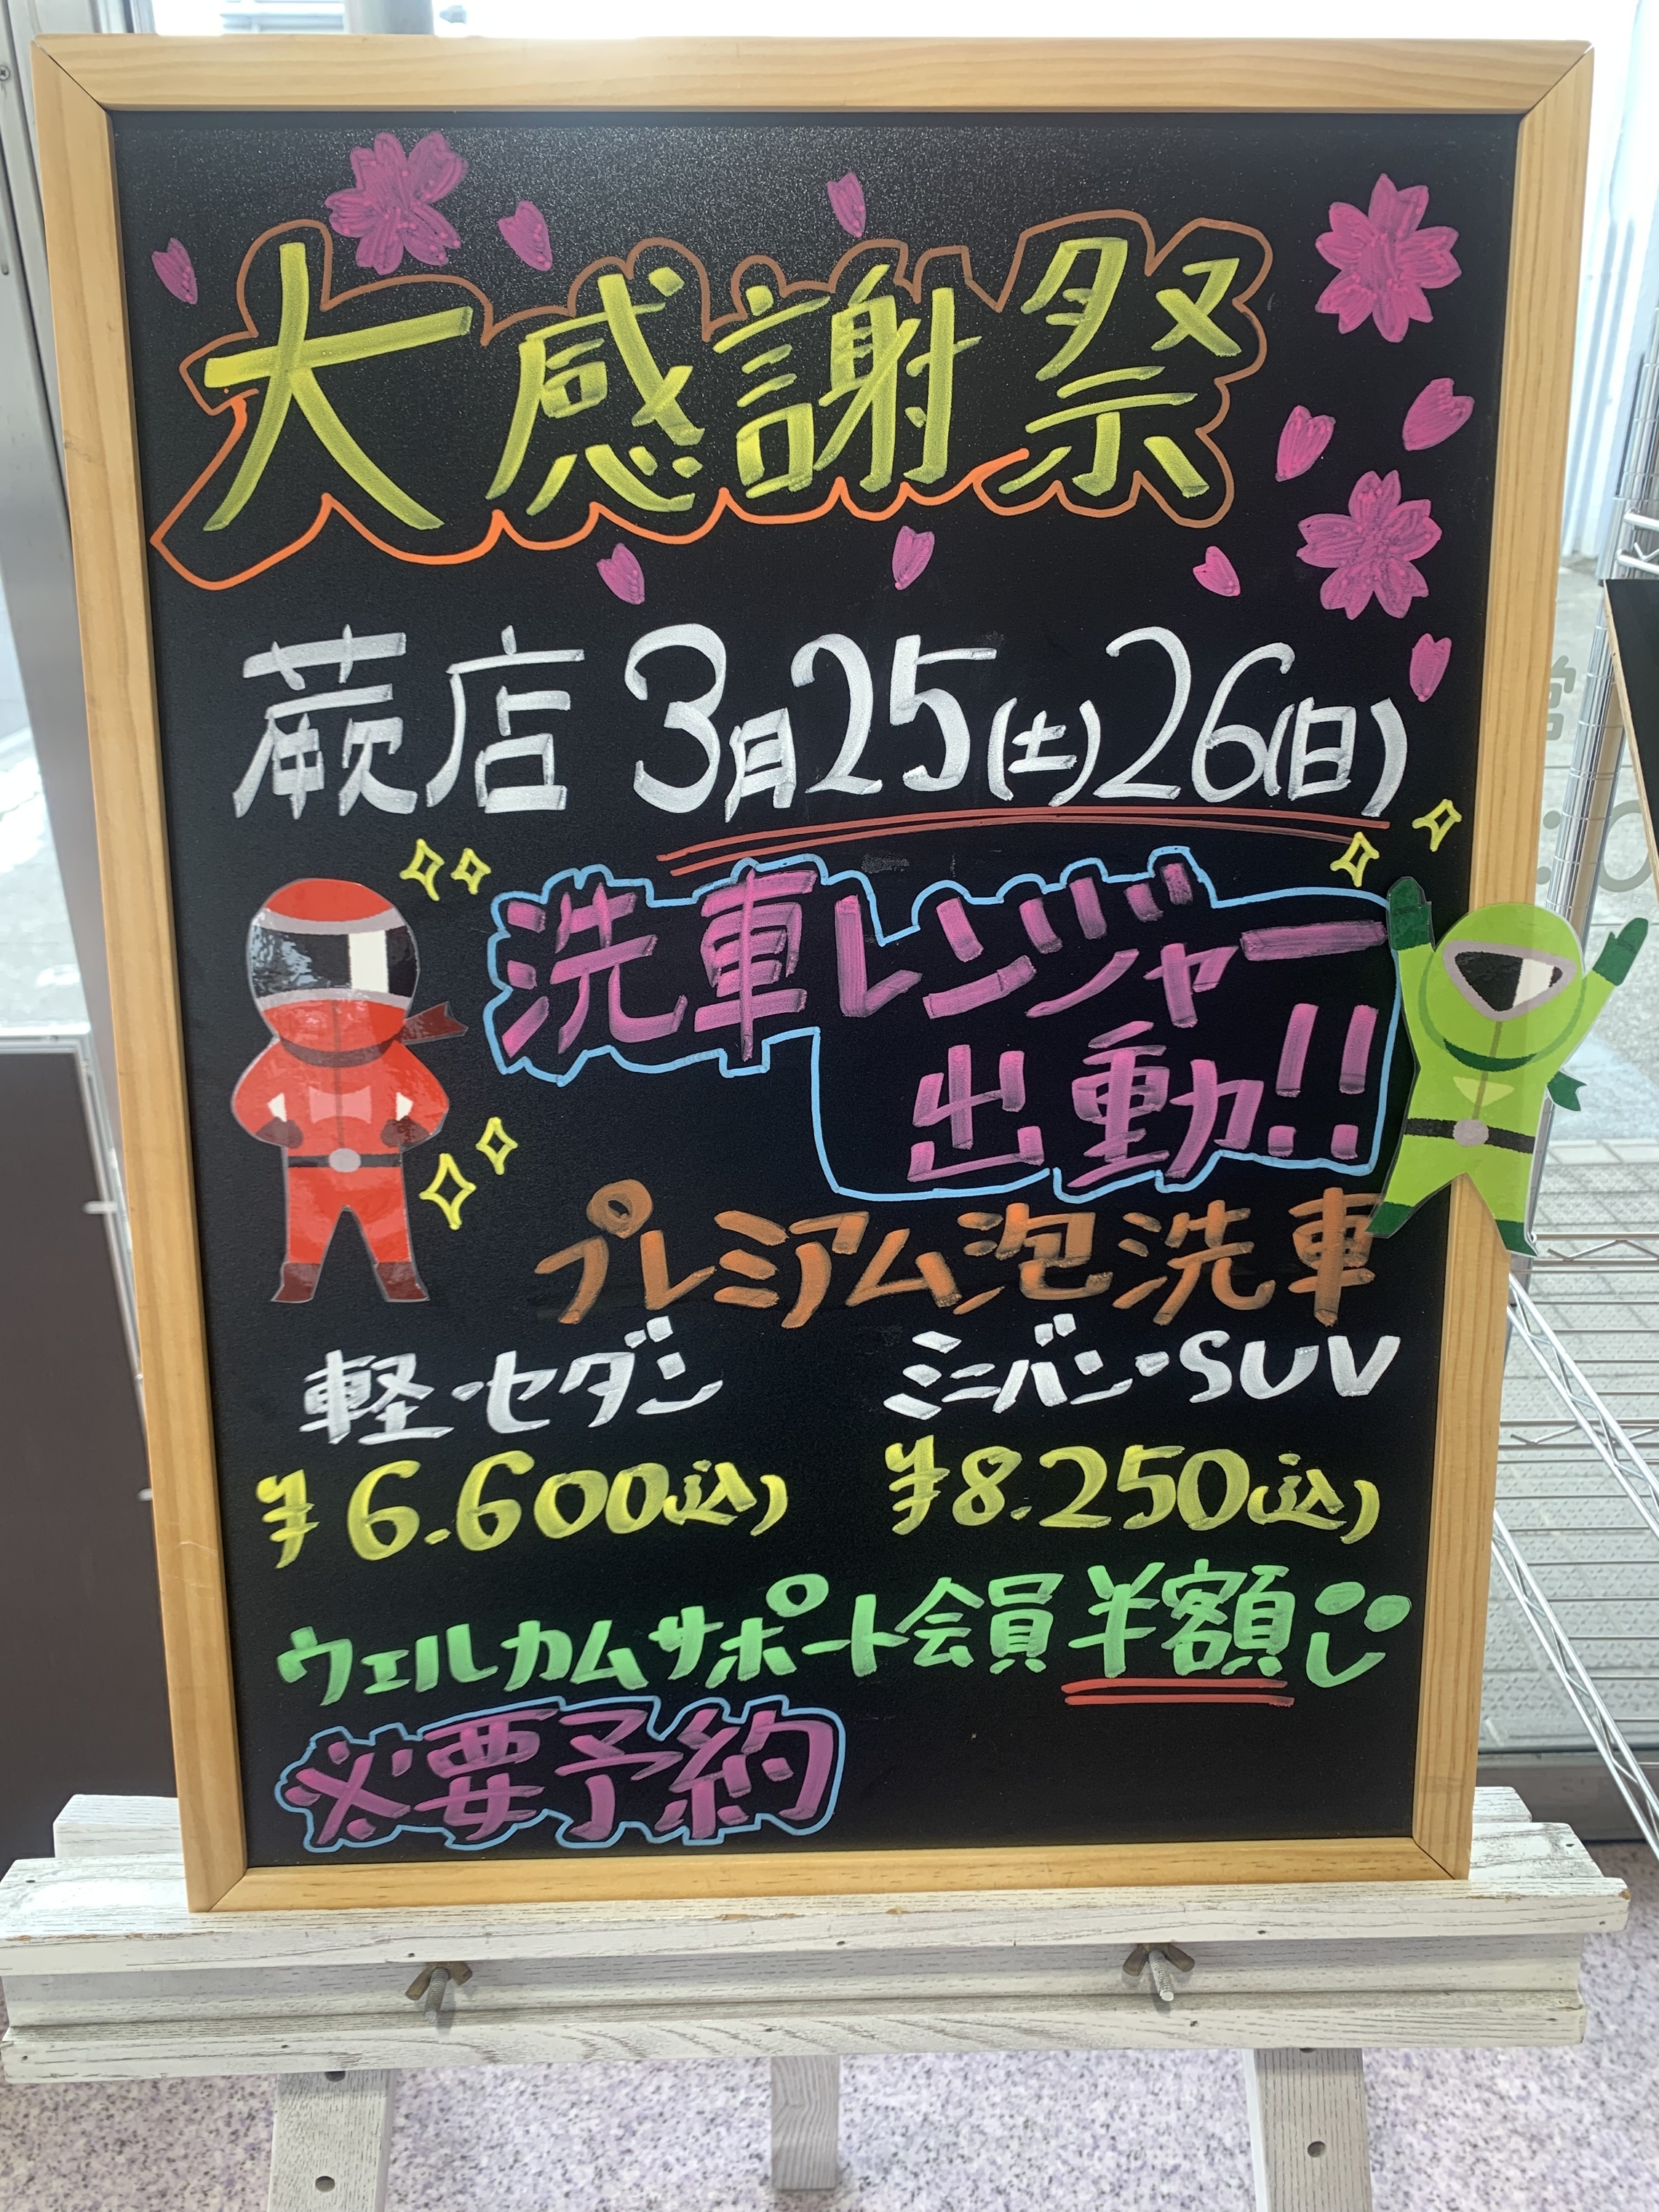 大感謝祭
蕨店 3月25(土)26(日)
洗車レンジャー
出動!!
プレミアム泡洗車
軽・セダン ミニバン・SUV
¥6.600(込) ¥8.250(込)
ウェルカムサポート会員半額
※要予約